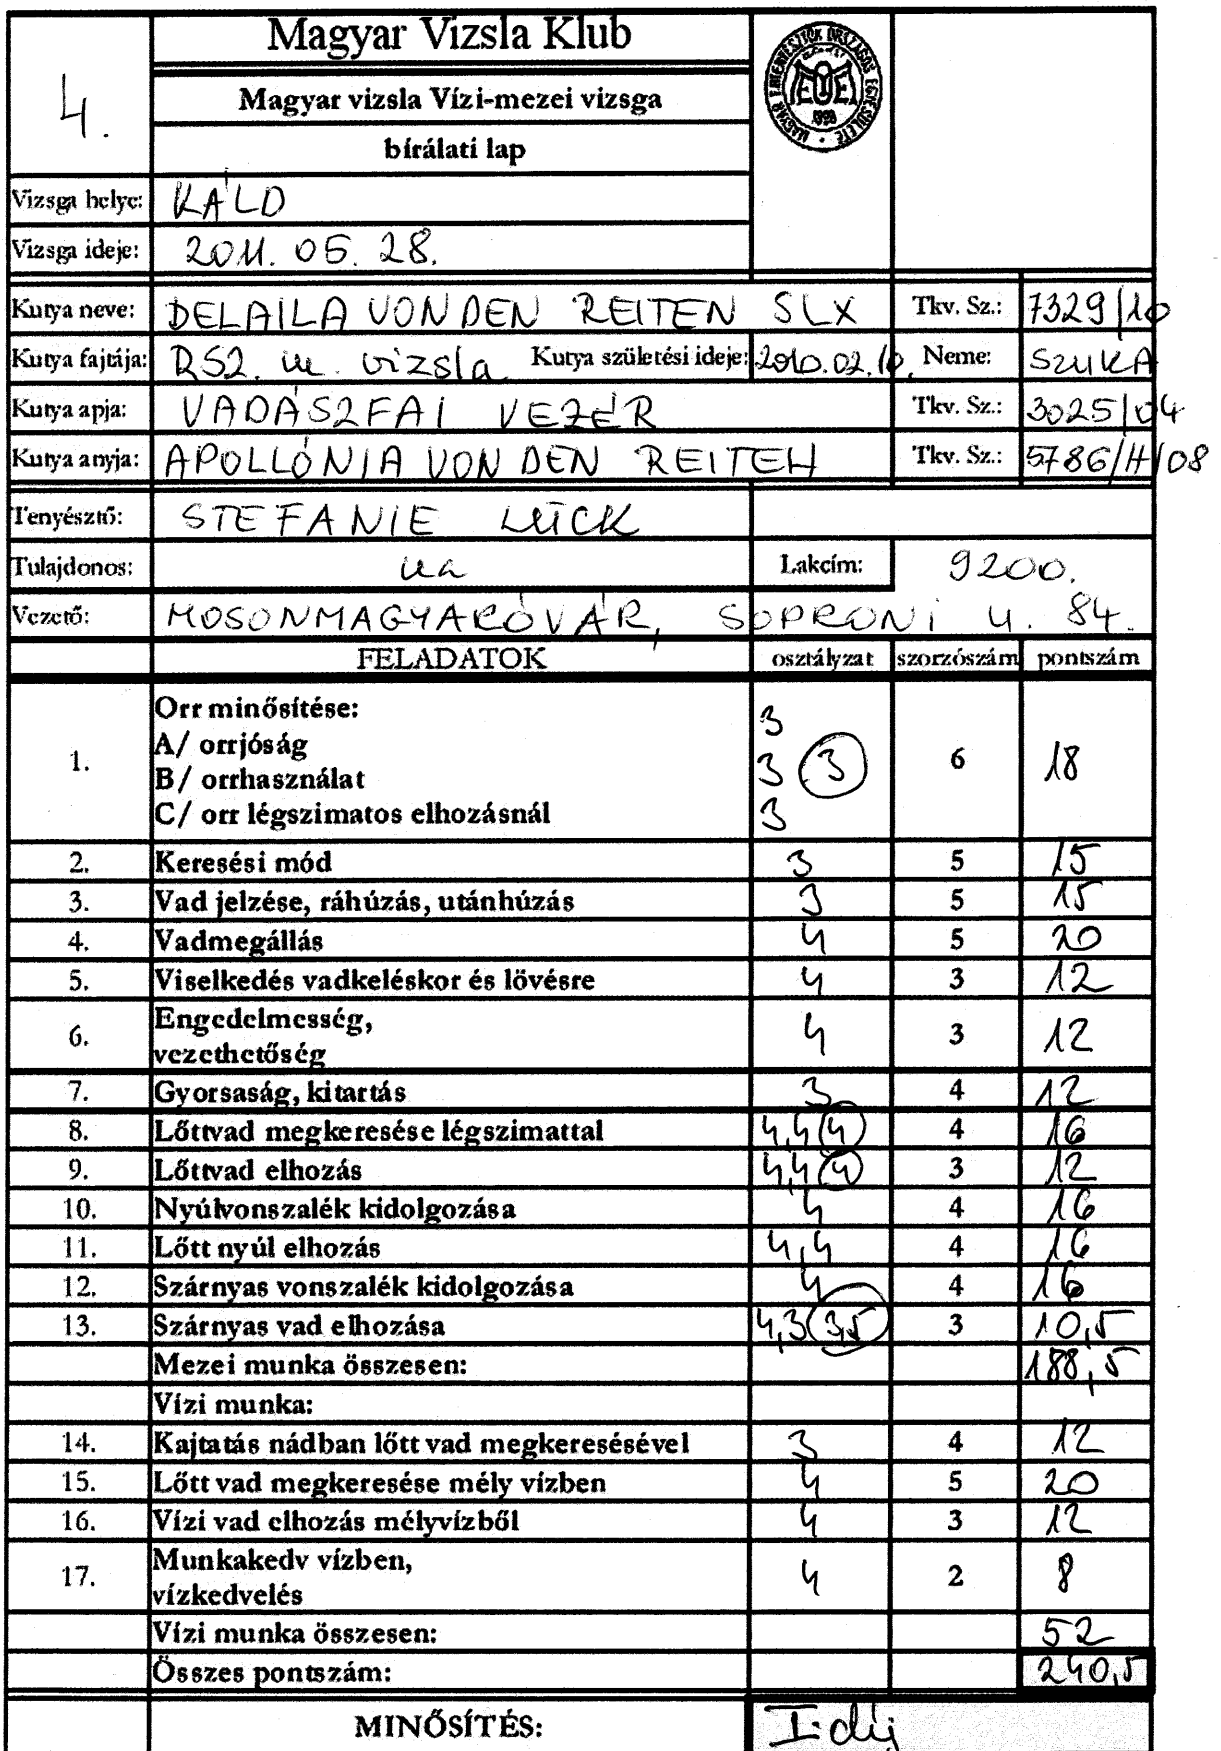 Magyar Vizsla Klub
4.
Magyar vizsla Vízi-mezei vizsga
bírálati lap
MAGYAR EBTENYÉSZTŐK ORSZÁGOS EGYESÜLETE
Vizsga helye: KÁLD
Vizsga ideje: 2011. 05. 28.
Kutya neve: DELAILA VON DEN REITEN SLX Tkv. Sz.: 7329/10
Kutya fajtája: RSZ. m. vizsla Kutya születési ideje: 2010.02.10. Neme: SZUKA
Kutya apja: VADÁSZFAI VEZÉR Tkv. Sz.: 3025/04
Kutya anyja: APOLLÓNIA VON DEN REITEN Tkv. Sz.: 5786/H/08
Tenyésztő: STEFANIE LÜCK
Tulajdonos: ua Lakcím: 9200.
Vezető: MOSONMAGYARÓVÁR, SOPRONI U. 84.
FELADATOK osztályzat szorzószám pontszám
Orr minősítése: 3
1. A/ orrjóság 3 3 6 18
B/ orrhasználat 3
C/ orr légszimatos elhozásnál
2. Keresési mód 3 5 15
3. Vad jelzése, ráhúzás, utánhúzás 3 5 15
4. Vadmegállás 4 5 20
5. Viselkedés vadkeléskor és lövésre 4 3 12
6. Engedelmesség, 4 3 12
vezethetőség
7. Gyorsaság, kitartás 3 4 12
8. Lőttvad megkeresése légszimattal 4,4 4 4 16
9. Lőttvad elhozás 4,4 4 3 12
10. Nyúlvonszalék kidolgozása 4 4 16
11. Lőtt nyúl elhozás 4,4 4 16
12. Szárnyas vonszalék kidolgozása 4 4 16
13. Szárnyas vad elhozása 4,3 3,5 3 10,5
Mezei munka összesen: 188,5
Vízi munka:
14. Kajtatás nádban lőtt vad megkeresésével 3 4 12
15. Lőtt vad megkeresése mély vízben 4 5 20
16. Vízi vad elhozás mélyvízből 4 3 12
17. Munkakedv vízben, 4 2 8
vízkedvelés
Vízi munka összesen: 52
Összes pontszám: 240,5
MINŐSÍTÉS: I. díj